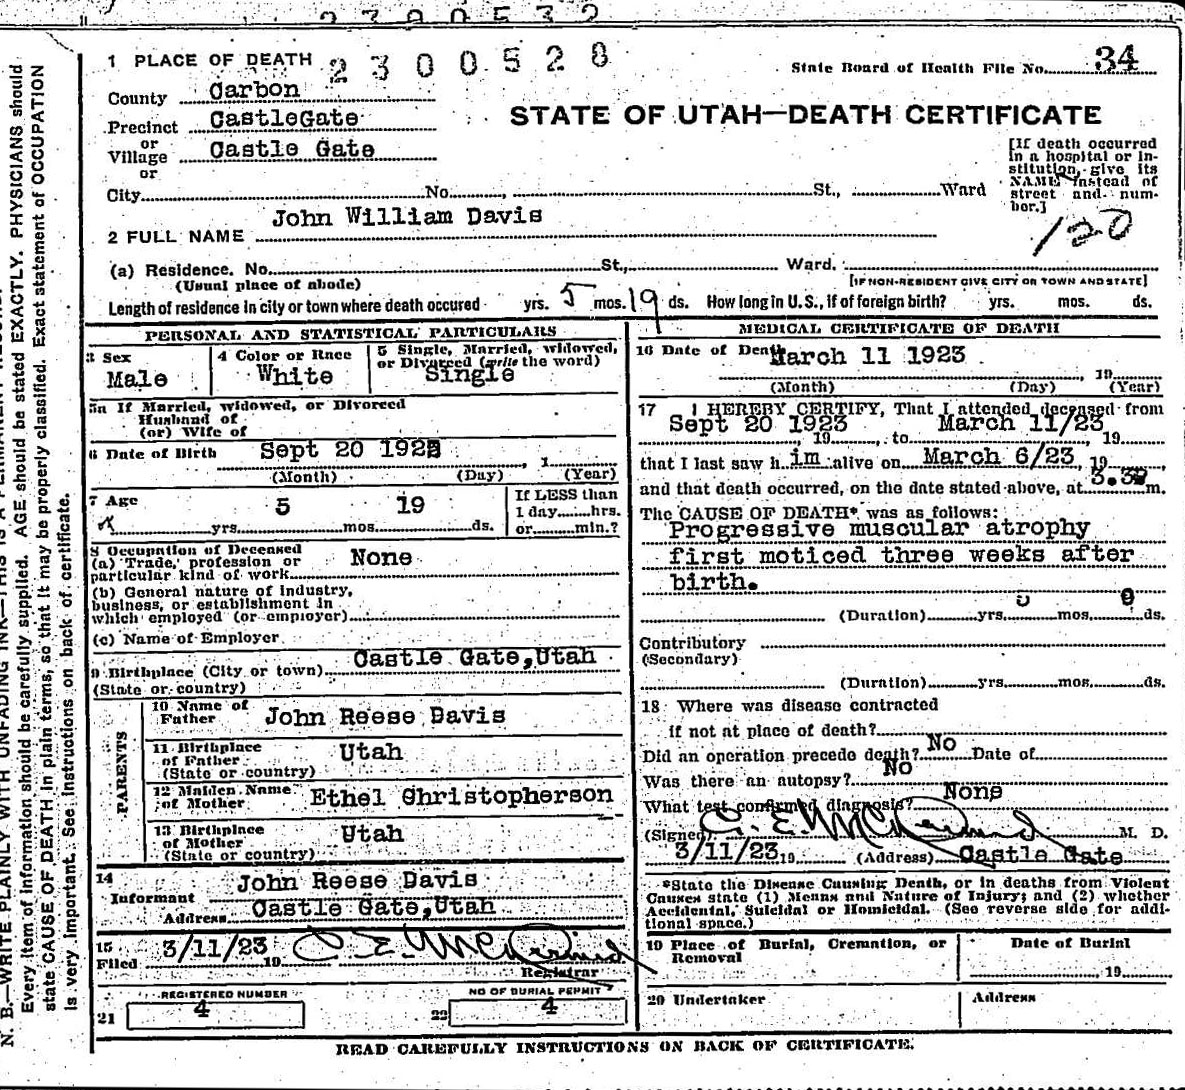 2300532
1 PLACE OF DEATH 2300528
State Board of Health File No. 34
County Carbon
Precinct CastleGate
or
Village Castle Gate
or
STATE OF UTAH—DEATH CERTIFICATE
[If death occurred in a hospital or institution, give its NAME instead of street and number.]
City No. St., Ward
120
2 FULL NAME John William Davis
(a) Residence. No. St., Ward.
(Usual place of abode) [IF NON-RESIDENT GIVE CITY OR TOWN AND STATE]
Length of residence in city or town where death occured yrs. 5 mos. 19 ds. How long in U. S., if of foreign birth? yrs. mos. ds.
PERSONAL AND STATISTICAL PARTICULARS
3 Sex
Male
4 Color or Race
White
5 Single, Married, widowed, or Divorced (write the word)
Single
5a If Married, widowed, or Divorced
Husband of
(or) Wife of
6 Date of Birth Sept 20 1922, 1
(Month) (Day) (Year)
7 Age 5 19
yrs. mos. ds.
If LESS than
1 day hrs.
or min.?
8 Occupation of Deceased
(a) Trade, profession or particular kind of work None
(b) General nature of Industry, business, or establishment in which employed (or employer)
(c) Name of Employer
9 Birthplace (City or town) Castle Gate,Utah
(State or country)
PARENTS
10 Name of Father John Reese Davis
11 Birthplace of Father Utah
(State or country)
12 Maiden Name of Mother Ethel Christopherson
13 Birthplace of Mother Utah
(State or country)
14
Informant John Reese Davis
Address Castle Gate,Utah
15
Filed 3/11/23 19
Registrar
REGISTERED NUMBER
21 4
NO OF BURIAL PERMIT
22 4
MEDICAL CERTIFICATE OF DEATH
16 Date of Death March 11 1923
, 19
(Month) (Day) (Year)
17 I HEREBY CERTIFY, That I attended deceased from
Sept 20 1923, 19, to March 11/23, 19
that I last saw him alive on March 6/23, 19,
and that death occurred, on the date stated above, at m.
The CAUSE OF DEATH* was as follows:
Progressive muscular atrophy
first moticed three weeks after
birth.
(Duration) yrs. mos. ds.
Contributory
(Secondary)
(Duration) yrs. mos. ds.
18 Where was disease contracted
if not at place of death?
Did an operation precede death? No Date of
Was there an autopsy? No
What test confirmed diagnosis? None
(Signed) M. D.
3/11/23 19 (Address) Castle Gate
*State the Disease Causing Death, or in deaths from Violent Causes state (1) Means and Nature of Injury; and (2) whether Accidental, Suicidal or Homicidal. (See reverse side for additional space.)
19 Place of Burial, Cremation, or Removal
Date of Burial
19
20 Undertaker
Address
READ CAREFULLY INSTRUCTIONS ON BACK OF CERTIFICATE.
N. B.—WRITE PLAINLY WITH UNFADING INK—THIS IS A PERMANENT
Every item of information should be carefully supplied. AGE should be stated EXACTLY. PHYSICIANS should
state CAUSE OF DEATH in plain terms, so that it may be properly classified. Exact statement of OCCUPATION
is very important. See instructions on back of certificate.